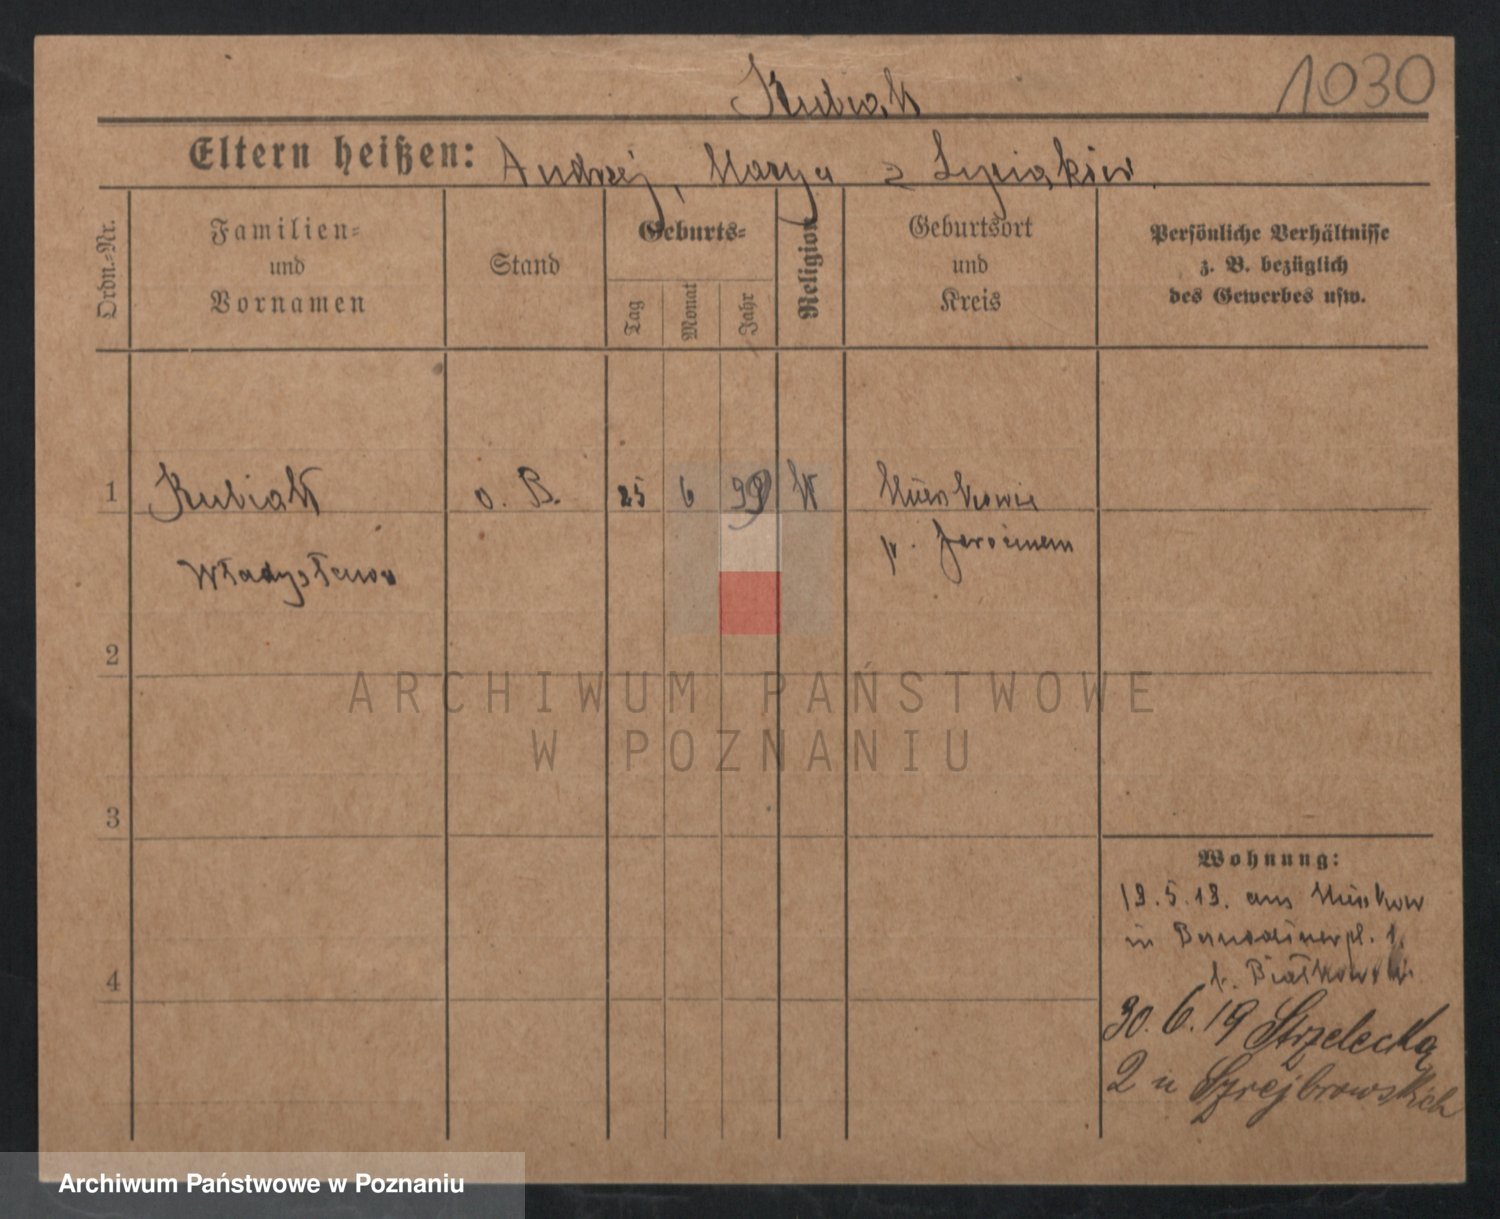 Kubiak
1030
Eltern heißen: Andrzej, Marya z
Ordn.-Nr.
Familien-
und
Vornamen
Stand
Geburts-
Tag
Monat
Jahr
Religion
Geburtsort
und
Kreis
Persönliche Verhältnisse
z. B. bezüglich
des Gewerbes usw.
1 Kubiak o. B. 25 6 99 K
Władysława p.
2
ARCHIWUM PAŃSTWOWE
W POZNANIU
3
Wohnung:
aus
in 1.
b.
4
30. 6. 19 Strzelecka
2 u Szrejbrowskich
Archiwum Państwowe w Poznaniu